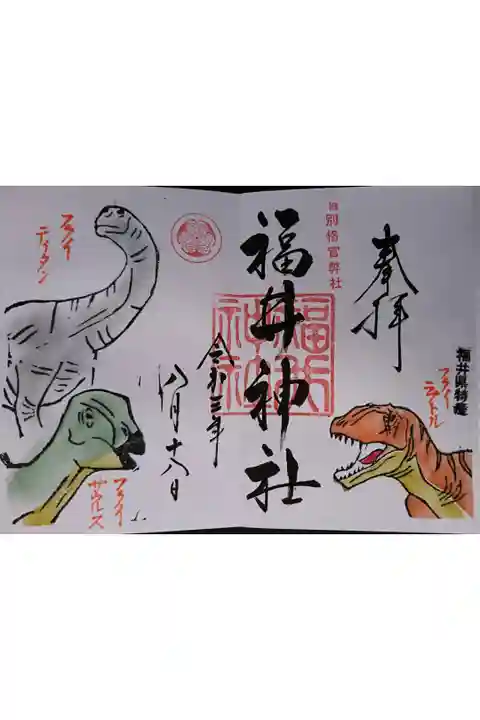 奉拝
福井県特産
フクイラプトル
旧別格官幣社
福井神社
福井神社
令和三年
八月十八日
フクイ
ティタン
フクイ
サウルス